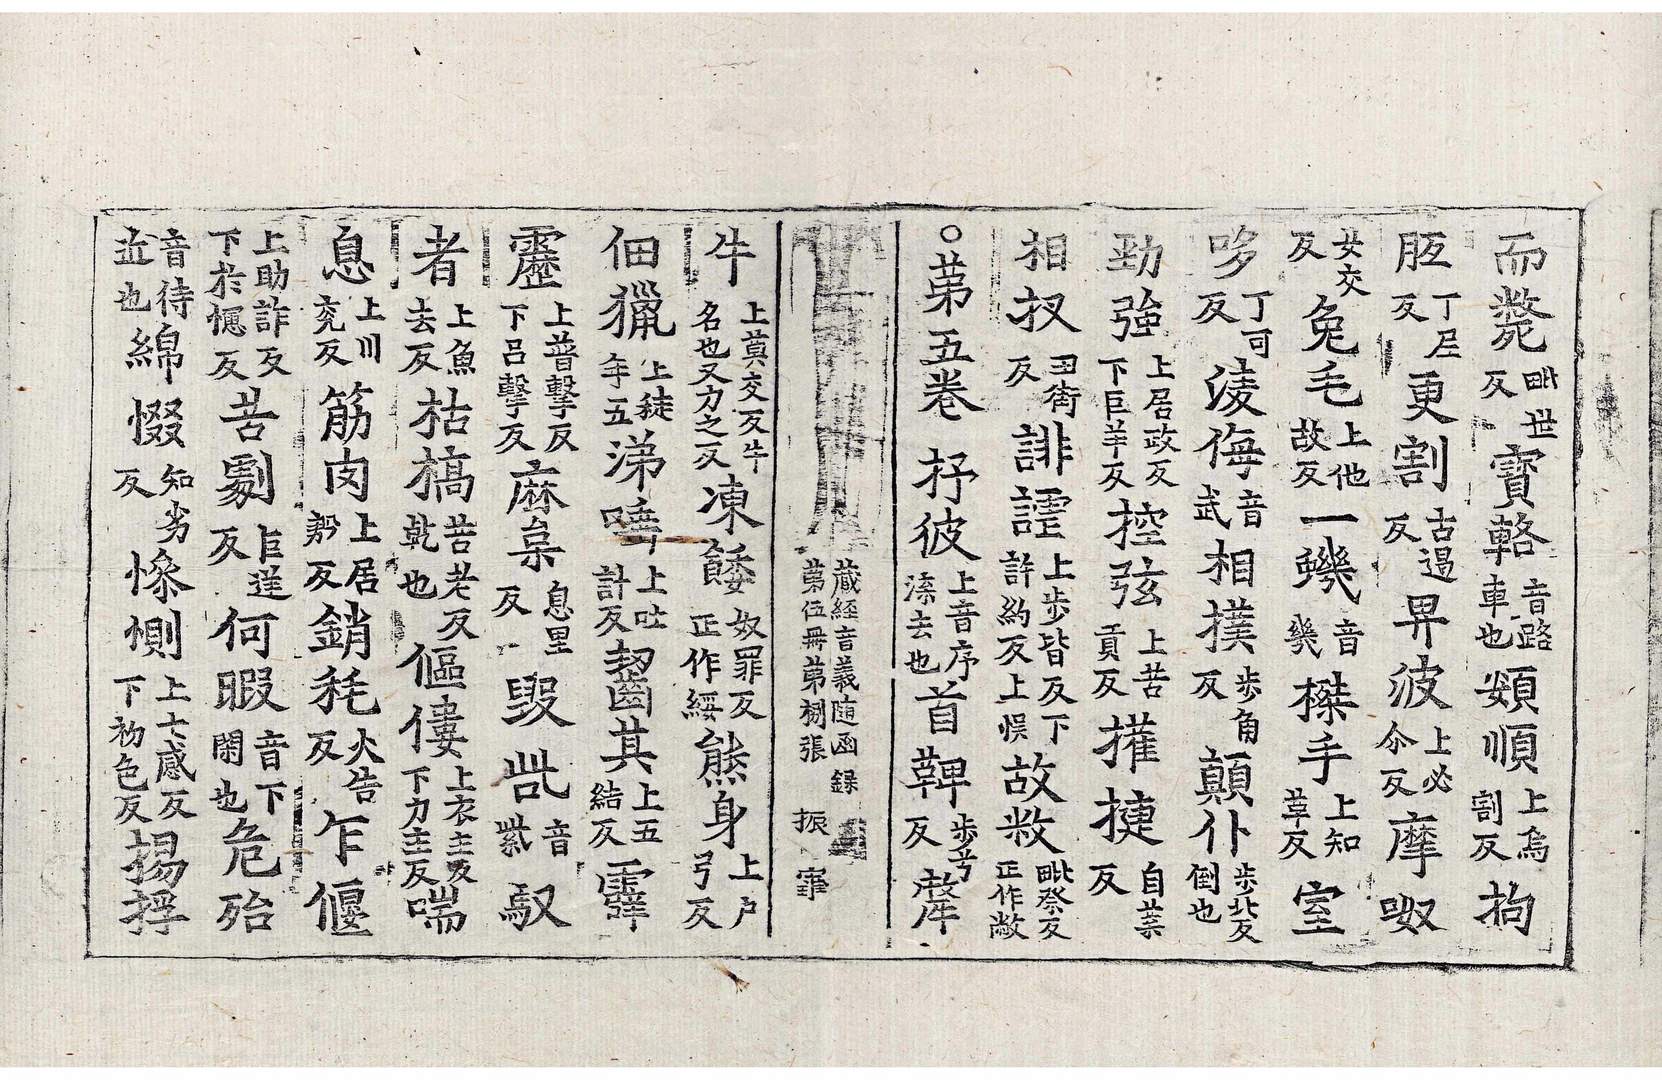 而㢢毗世反寶輅音路車也頞順上烏割反拘
胝丁尼反更割古遏反畀彼上必尒反摩呶
女交反兔毛上他故反一蟣音幾榤手上知草反室
哆丁可反淩侮音武相撲步角反顛仆步北反倒也
勁強上居政反下巨羊反控弦上苦貢反摧揵自葉反
相扠丑街反誹謔上步皆反下許約反上悮故敉毗祭反正作敝
○第五卷抒彼上音序渫去也首鞞步兮反犛
藏經音義隨函錄第伍冊第捌張振宰
牛上莫交反牛名也又力之反凍餧奴罪反正作綏熊身上戶弓反
佃獵上徒年五涕唾上吐計反齧其上五結反霹
靂上普擊反下呂擊反麻枲息里反毀呰音紫馭
者上魚去反枯槁苦老反乾也傴僂上衣主反下力主反喘
息上川兖反筋肉上居㔟反銷耗火告反乍偃
上助詐反下於憾反苦劇巨逆反何暇音下閑也危殆
音待並也綿惙知劣反慘惻上七感反下初色反揚捊